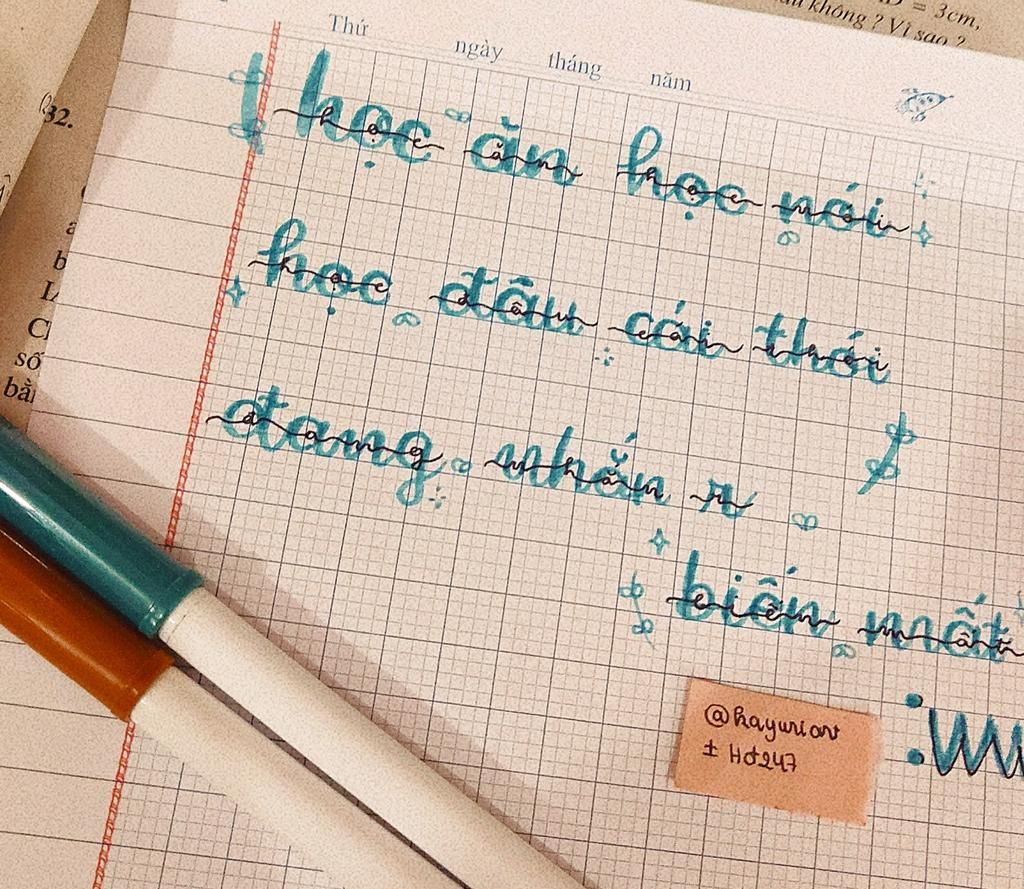 = 3cm,
không ? Vì sao ?
Thứ ngày tháng năm
32.
học ăn học nói
học đâu cái thói
đang nhắn r
biến mất
:WW
số
bằ
@hayuriart
± Hđ247